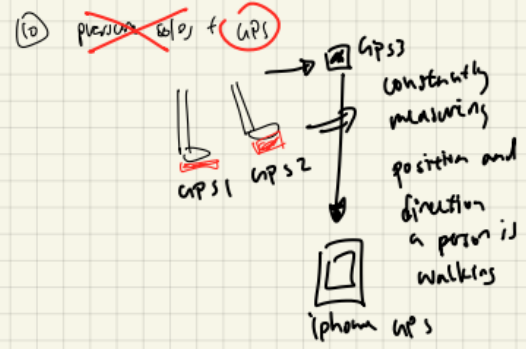 10 pressure soles + GPS
GPS3
constantly
measuring
position and
direction
a person is
walking
GPS1 GPS2
iphone GPS